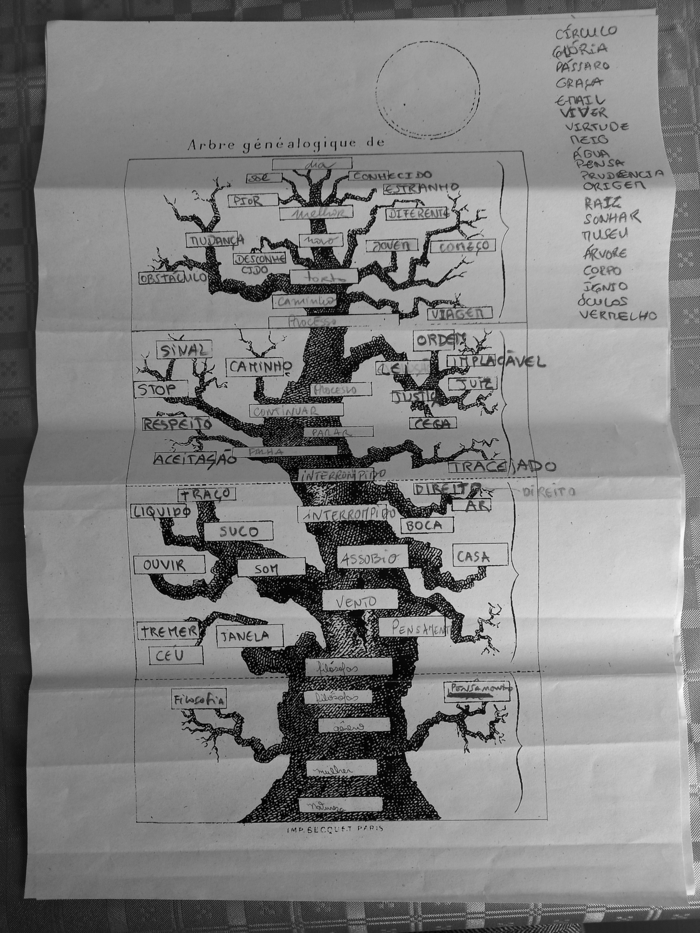 CÍRCULO
GLÓRIA
PÁSSARO
GRAÇA
EMAIL
VIVER
VIRTUDE
MEIO
ÁGUA
PENSA
PRUDÊNCIA
ORIGEM
RAIZ
SONHAR
MUSEU
ÁRVORE
CORPO
ÍGNIO
ÓCULOS
VERMELHO
Arbre généalogique de
dia
SER
CONHECIDO
ESTRANHO
PIOR
melhor
DIFERENTE
MUDANÇA
novo
JOVEM
COMEÇO
DESCONHE
CIDO
OBSTÁCULO
torto
CAMINHO
VIAGEM
PROCESSO
ORDEM
SINAL
CAMINHO
LEI
IMPLACÁVEL
STOP
PROCESSO
JUIZ
JUSTIÇA
CONTINUAR
RESPEITO
PARAR
CEGA
ACEITAÇÃO
FALHA
TRACEJADO
INTERROMPIDO
TRAÇO
DIREITO
DIREITO
LIQUIDO
INTERROMPIDO
AR
SUCO
BOCA
OUVIR
SOM
ASSOBIO
CASA
VENTO
TREMER
JANELA
PENSAMENT
CÉU
filósofos
Filosofia
filósofos
PENSAMENTO
mulher
natureza
IMP. BECQUET PARIS